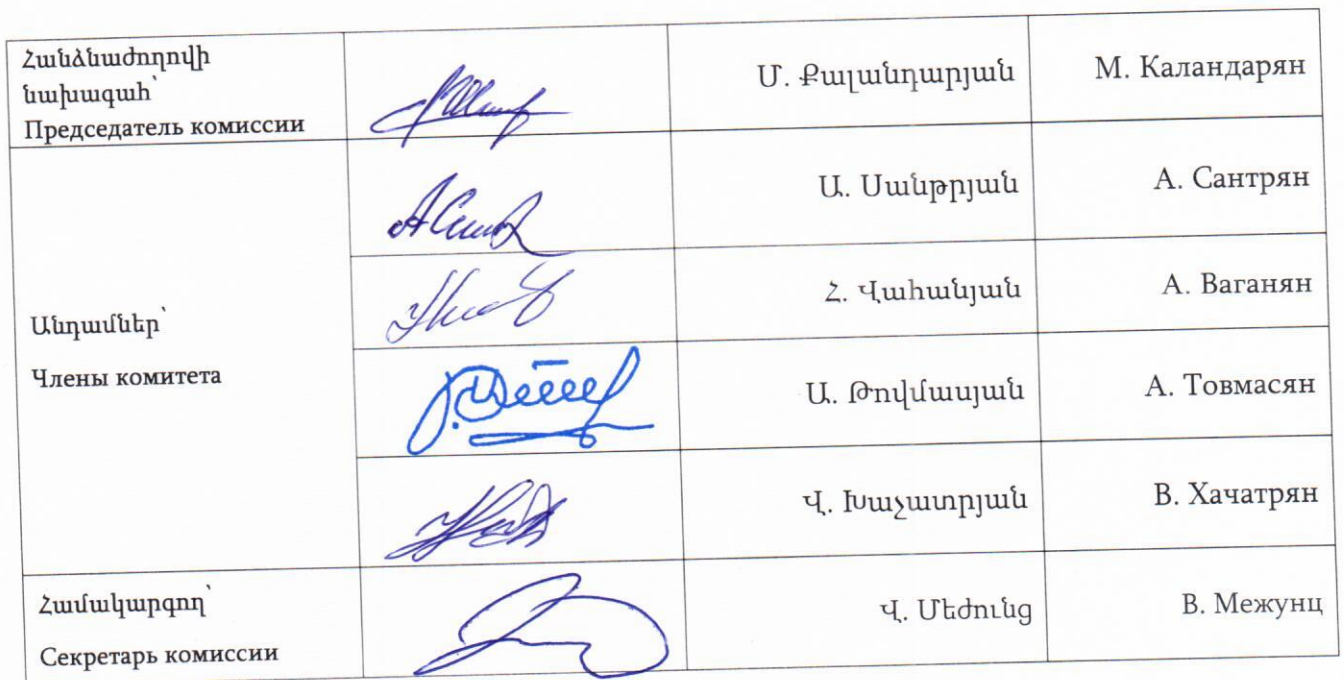 Հանձնաժողովի
նախագահ՝
Председатель комиссии
Մ. Քալանդարյան
М. Каландарян
Ա. Սանթրյան
А. Сантрян
Անդամներ՝
Члены комитета
Հ. Վահանյան
А. Ваганян
Ա. Թովմասյան
А. Товмасян
Վ. Խաչատրյան
В. Хачатрян
Համակարգող՝
Секретарь комиссии
Վ. Մեժունց
В. Межунц